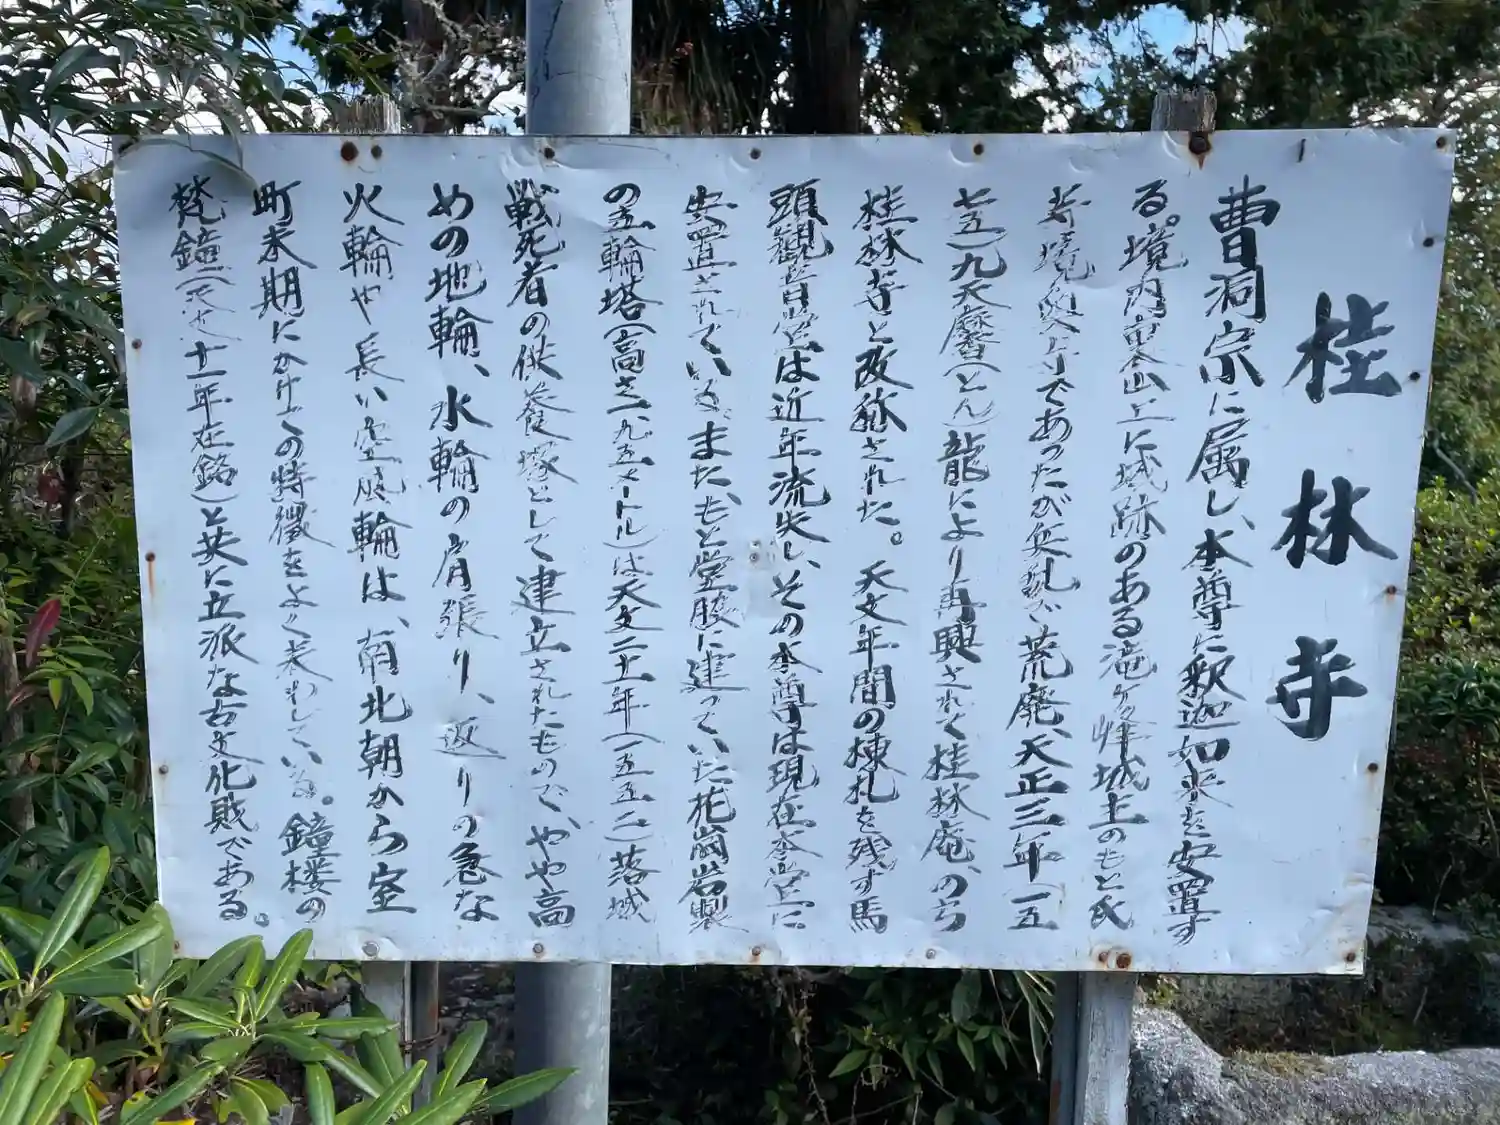 桂林寺
曹洞宗に属し、本尊に釈迦如来を安置す
る。境内裏山上に城跡のある滝ヶ峰城主のもと氏
寺境奥寺であったが兵乱で荒廃、天正三年(一五
七五)九天麿(とん)龍により再興されて桂林庵、のち
桂林寺と改称された。天文年間の棟札を残す馬
頭観音堂は近年流失し、その本尊は現在本堂に
安置されている。また、もと堂脇に建っていた花崗岩製
の五輪塔(高さ一、九五メートル)は天文二十一年(一五五二)落城
戦死者の供養塚として建立されたもので、やや高
めの地輪、水輪の肩張り、返りの急な
火輪や長い空風輪は、南北朝から室
町末期にかけての特徴をよく表わしている。鐘楼の
梵鐘(天文十一年在銘)と共に立派な古文化財である。